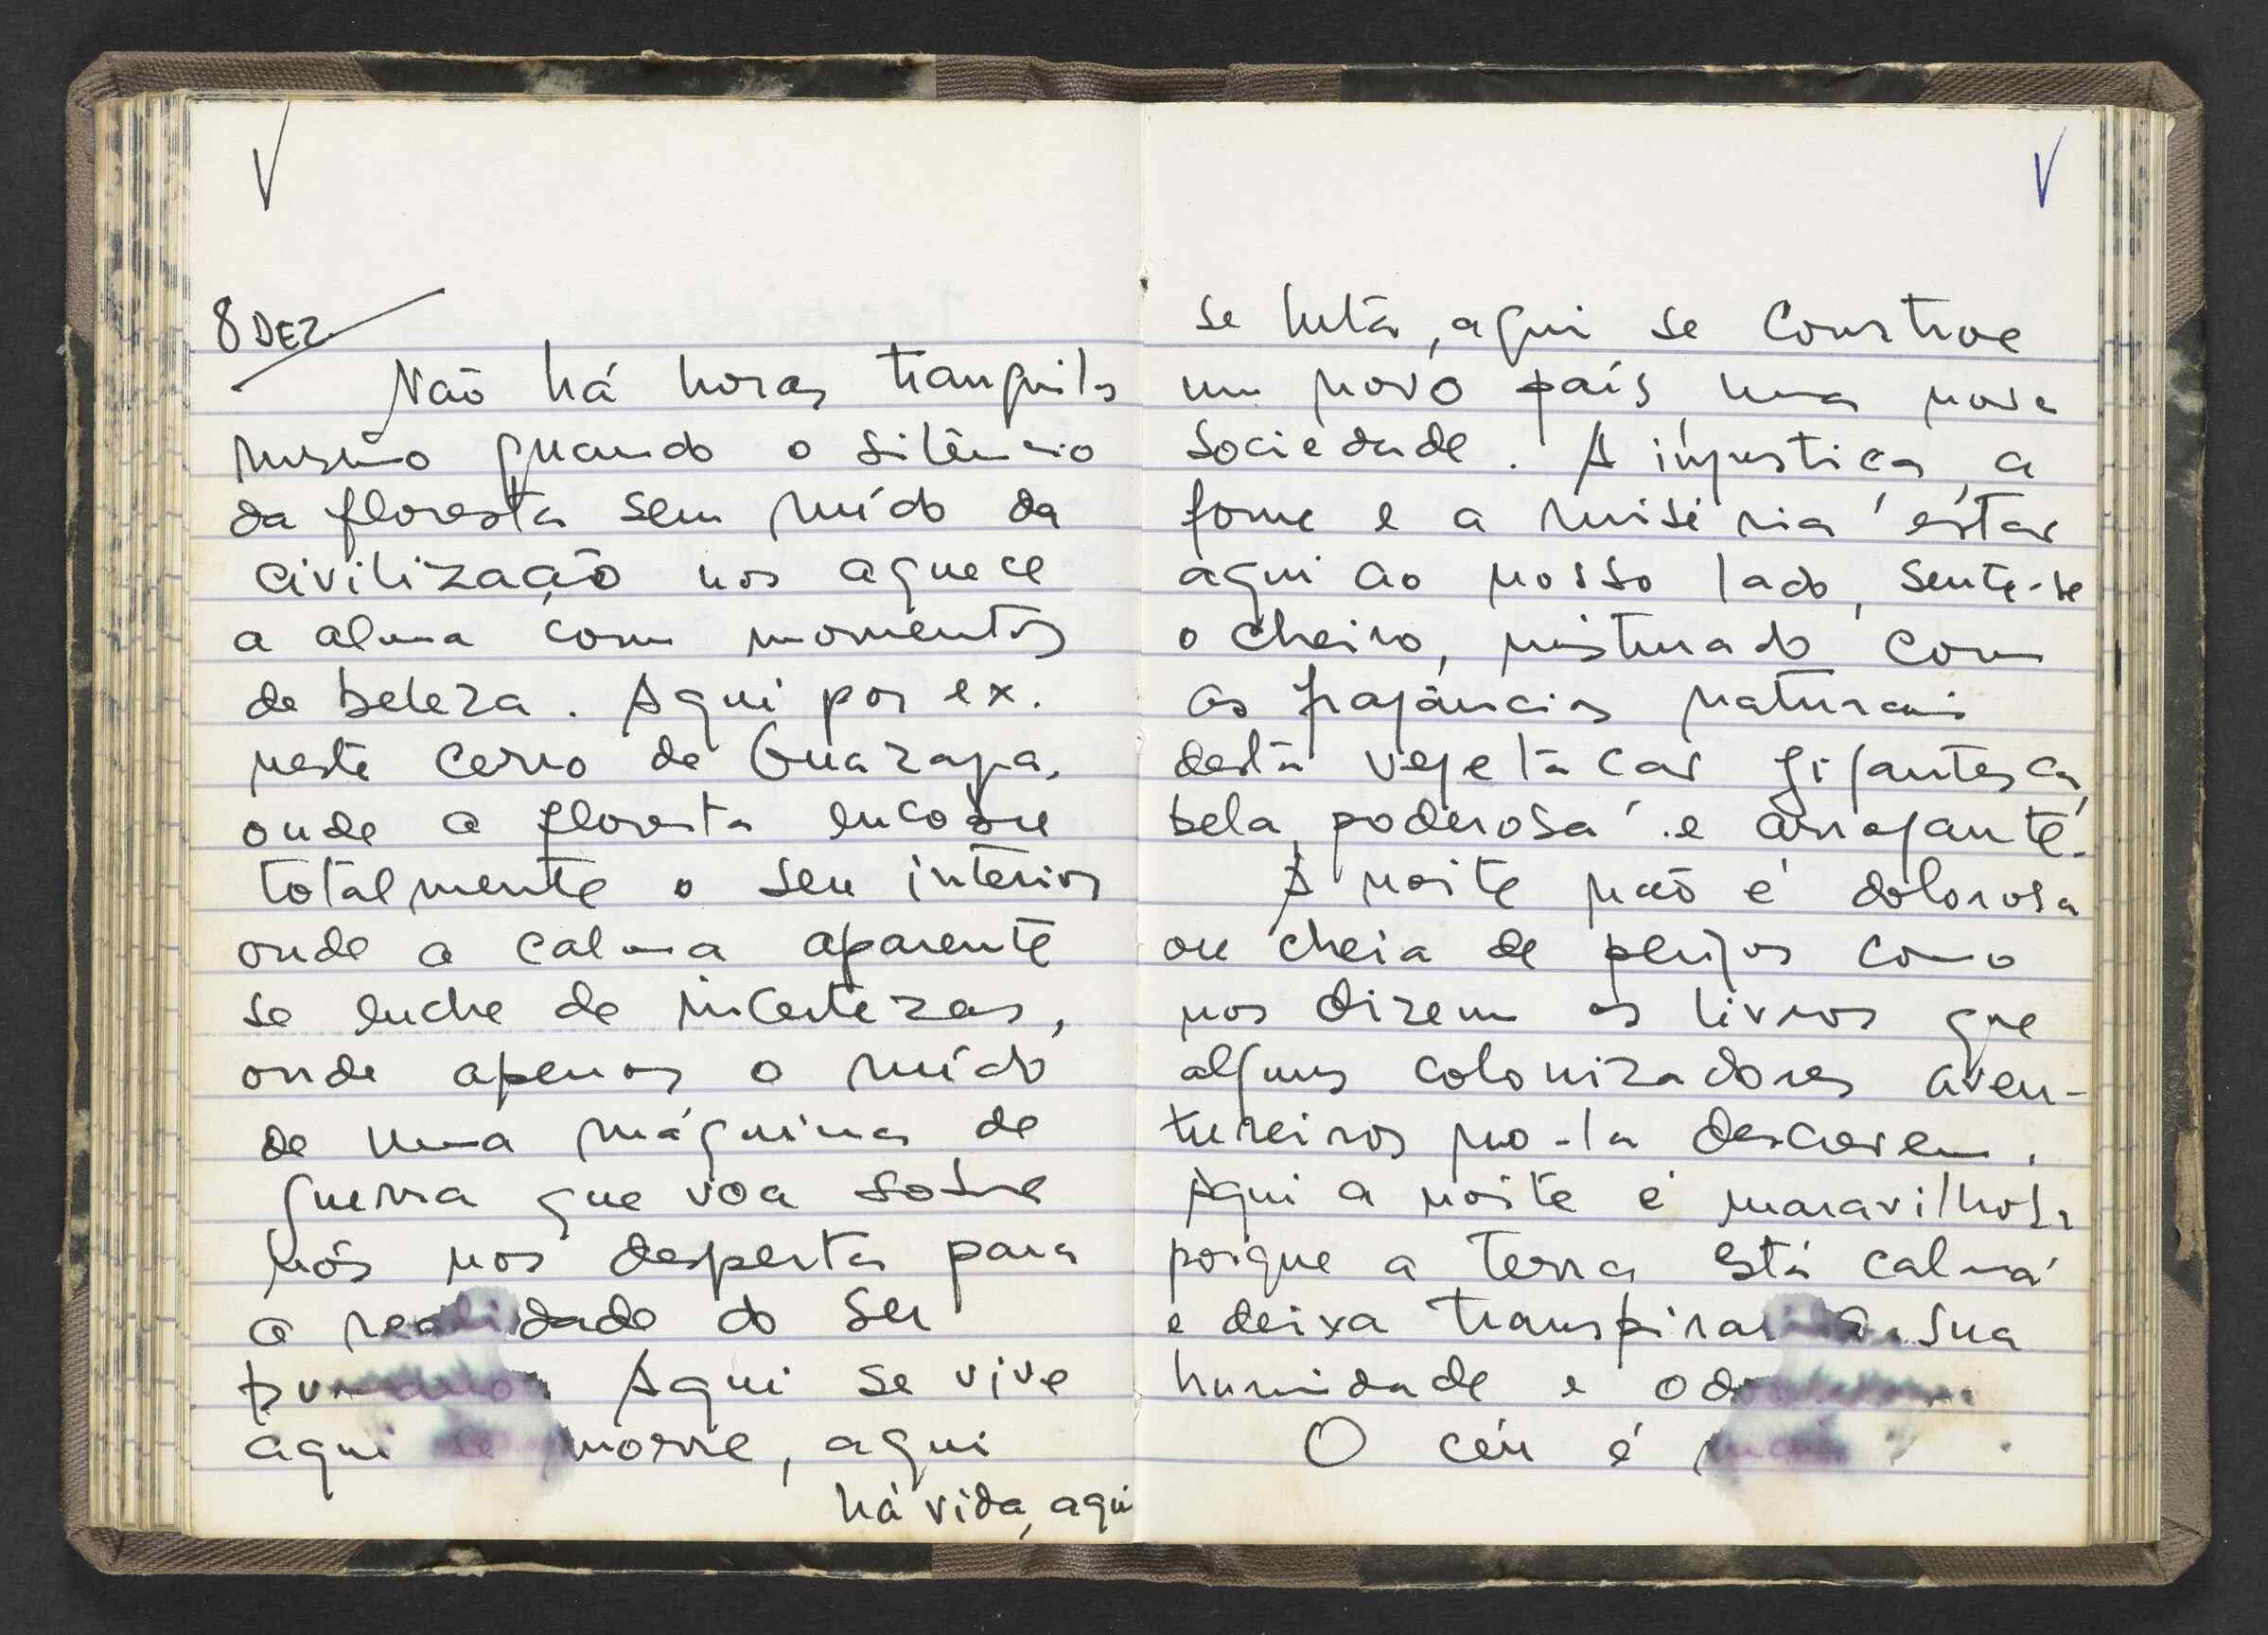 8 DEZ
Não há horas tranquilas
mesmo quando o silêncio
da floresta sem ruído da
civilização nos aquece
a alma com momentos
de beleza. Aqui por ex.
neste cerro de Guazapa,
onde a floresta encobre
totalmente o seu interior
onde a calma aparente
se enche de incertezas,
onde apenas o ruído
de uma máquina de
guerra que voa sobre
nós nos desperta para
a realidade do ser
Aqui se vive
aqui se morre, aqui
há vida, aqui
se luta, aqui se constroe
um novo país, uma nova
sociedade. A injustiça, a
fome e a miséria, estão
aqui ao nosso lado, sente-se
o cheiro, misturado com
as fragâncias naturais
desta vegetação gigantesca,
bela, poderosa e arrogante.
A noite não é dolorosa
ou cheia de perigos como
nos dizem os livros que
alguns colonizadores aven-
tureiros no-la descrevem.
Aqui a noite é maravilhosa
porque a terra está calma
e deixa transpirar a sua
humidade e
O céu é